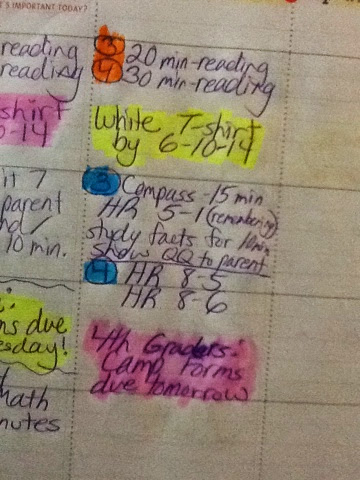 T'S IMPORTANT TODAY?
reading
reading
shirt
0-14
it 7
parent
10 min.
ns due
esday!
Math
nutes
3 20 min-reading
4 30 min-reading
White T-shirt
by 6-10-14
3 Compass -15 min
HR 5-1 (remembering)
study facts for 10 min
show QQ to parent
4 HR 8-5
HR 8-6
4th Graders:
Camp forms
due tomorrow